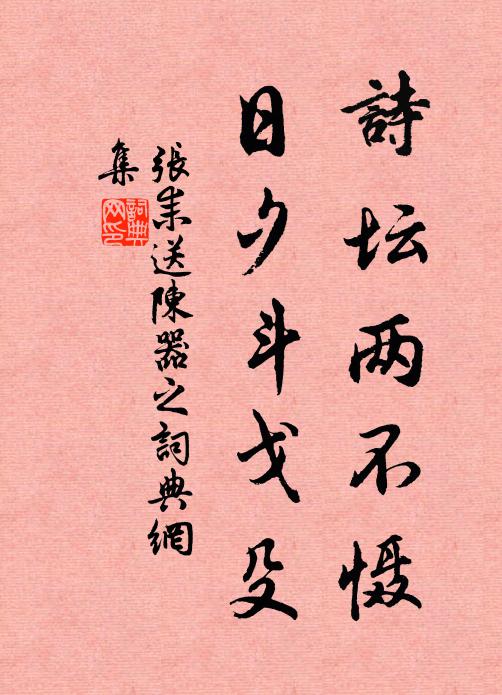 詩坛两不慑
日夕斗戈殳
張耒送陳器之詞典網
集
詞典网印